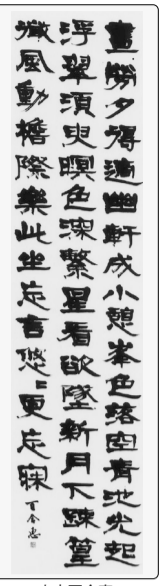 晝勝夕彌適幽軒成小憩峯色落空青池光起
浮翠須臾暝色深繁星看欲墜新月下踈篁
微風動檐際樂此坐忘言悠〻更忘寐
丁合惠